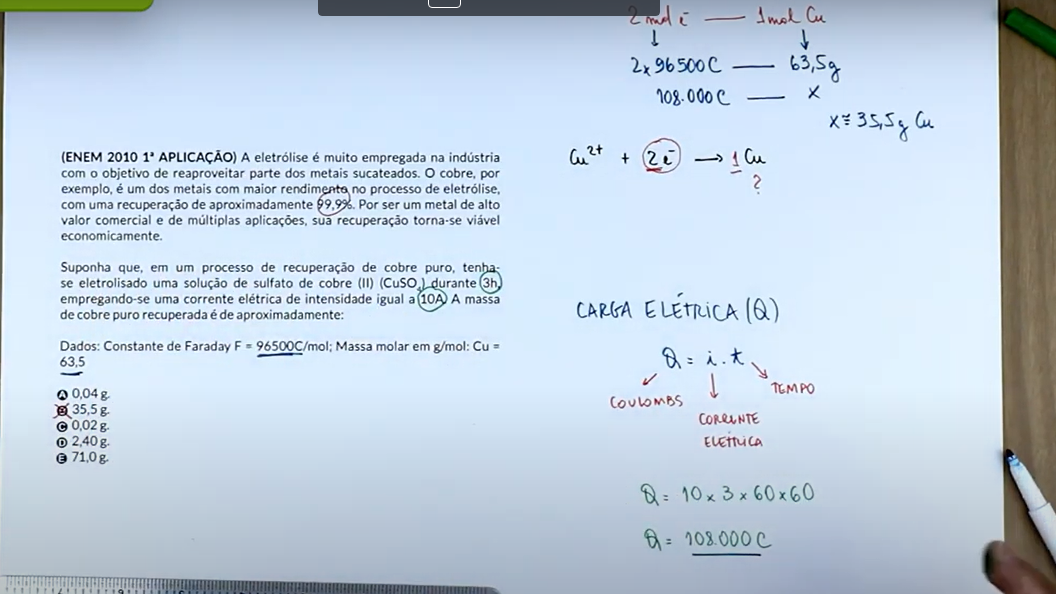 (ENEM 2010 1ª APLICAÇÃO) A eletrólise é muito empregada na indústria
com o objetivo de reaproveitar parte dos metais sucateados. O cobre, por
exemplo, é um dos metais com maior rendimento no processo de eletrólise,
com uma recuperação de aproximadamente 99,9%. Por ser um metal de alto
valor comercial e de múltiplas aplicações, sua recuperação torna-se viável
economicamente.
Suponha que, em um processo de recuperação de cobre puro, tenha-
se eletrolisado uma solução de sulfato de cobre (II) (CuSO₄) durante 3h,
empregando-se uma corrente elétrica de intensidade igual a 10A. A massa
de cobre puro recuperada é de aproximadamente:
Dados: Constante de Faraday F = 96500C/mol; Massa molar em g/mol: Cu =
63,5
A 0,04 g.
B 35,5 g.
C 0,02 g.
D 2,40 g.
E 71,0 g.
2 mol e⁻ — 1 mol Cu
2x96500C — 63,5g
108.000C — x
x ≅ 35,5g Cu
Cu²⁺ + 2e⁻ → 1 Cu
?
CARGA ELÉTRICA (Q)
Q = i . t
COULOMBS
CORRENTE
ELÉTRICA
TEMPO
Q = 10 x 3 x 60 x 60
Q = 108.000 C